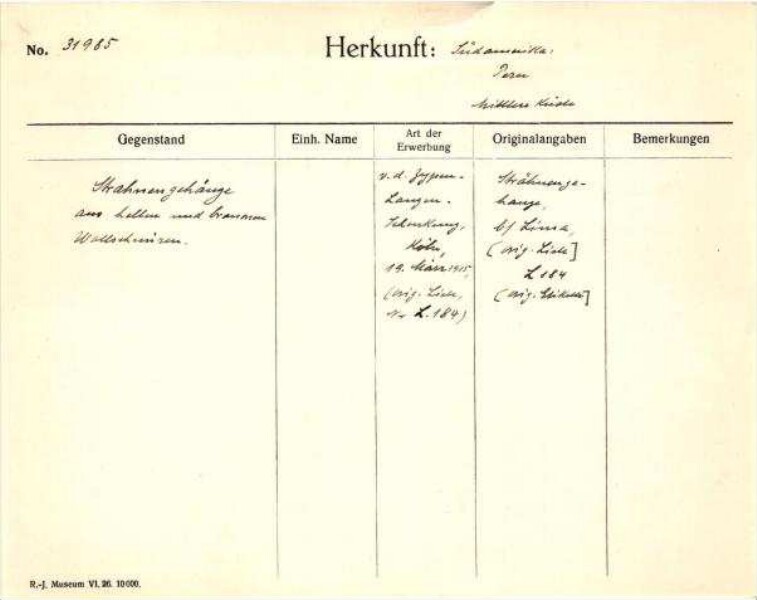 No. 31985 Herkunft: Südamerika:
Peru
Mittlere Küste
Gegenstand Einh. Name Art der Erwerbung Originalangaben Bemerkungen
Strähnengehänge
aus hellen und braunen
Wollschnüren.
v. d. Zypen-
Langen-
Schenkung,
Köln,
19. März 1915,
(orig. Liste,
Nr L. 184)
Strähnenge-
hänge,
bf Lima,
(orig. Liste]
L 184
(orig. Etikette]
R.-J. Museum VI. 26. 10000.